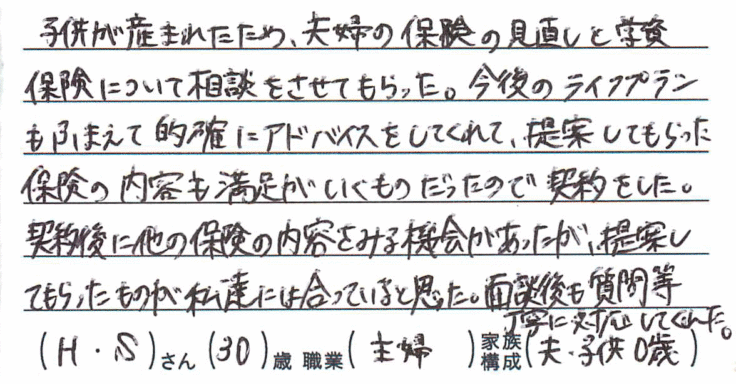 子供が産まれたため、夫婦の保険の見直しと学資
保険について相談をさせてもらった。今後のライフプラン
もふまえて的確にアドバイスをしてくれて、提案してもらった
保険の内容も満足がいくものだったので契約をした。
契約後に他の保険の内容をみる機会があったが、提案し
てもらったものが私達には合っていると思った。面談後も質問等
丁寧に対応してくれた。
(H・S)さん(30)歳 職業(主婦)家族構成(夫・子供0歳)